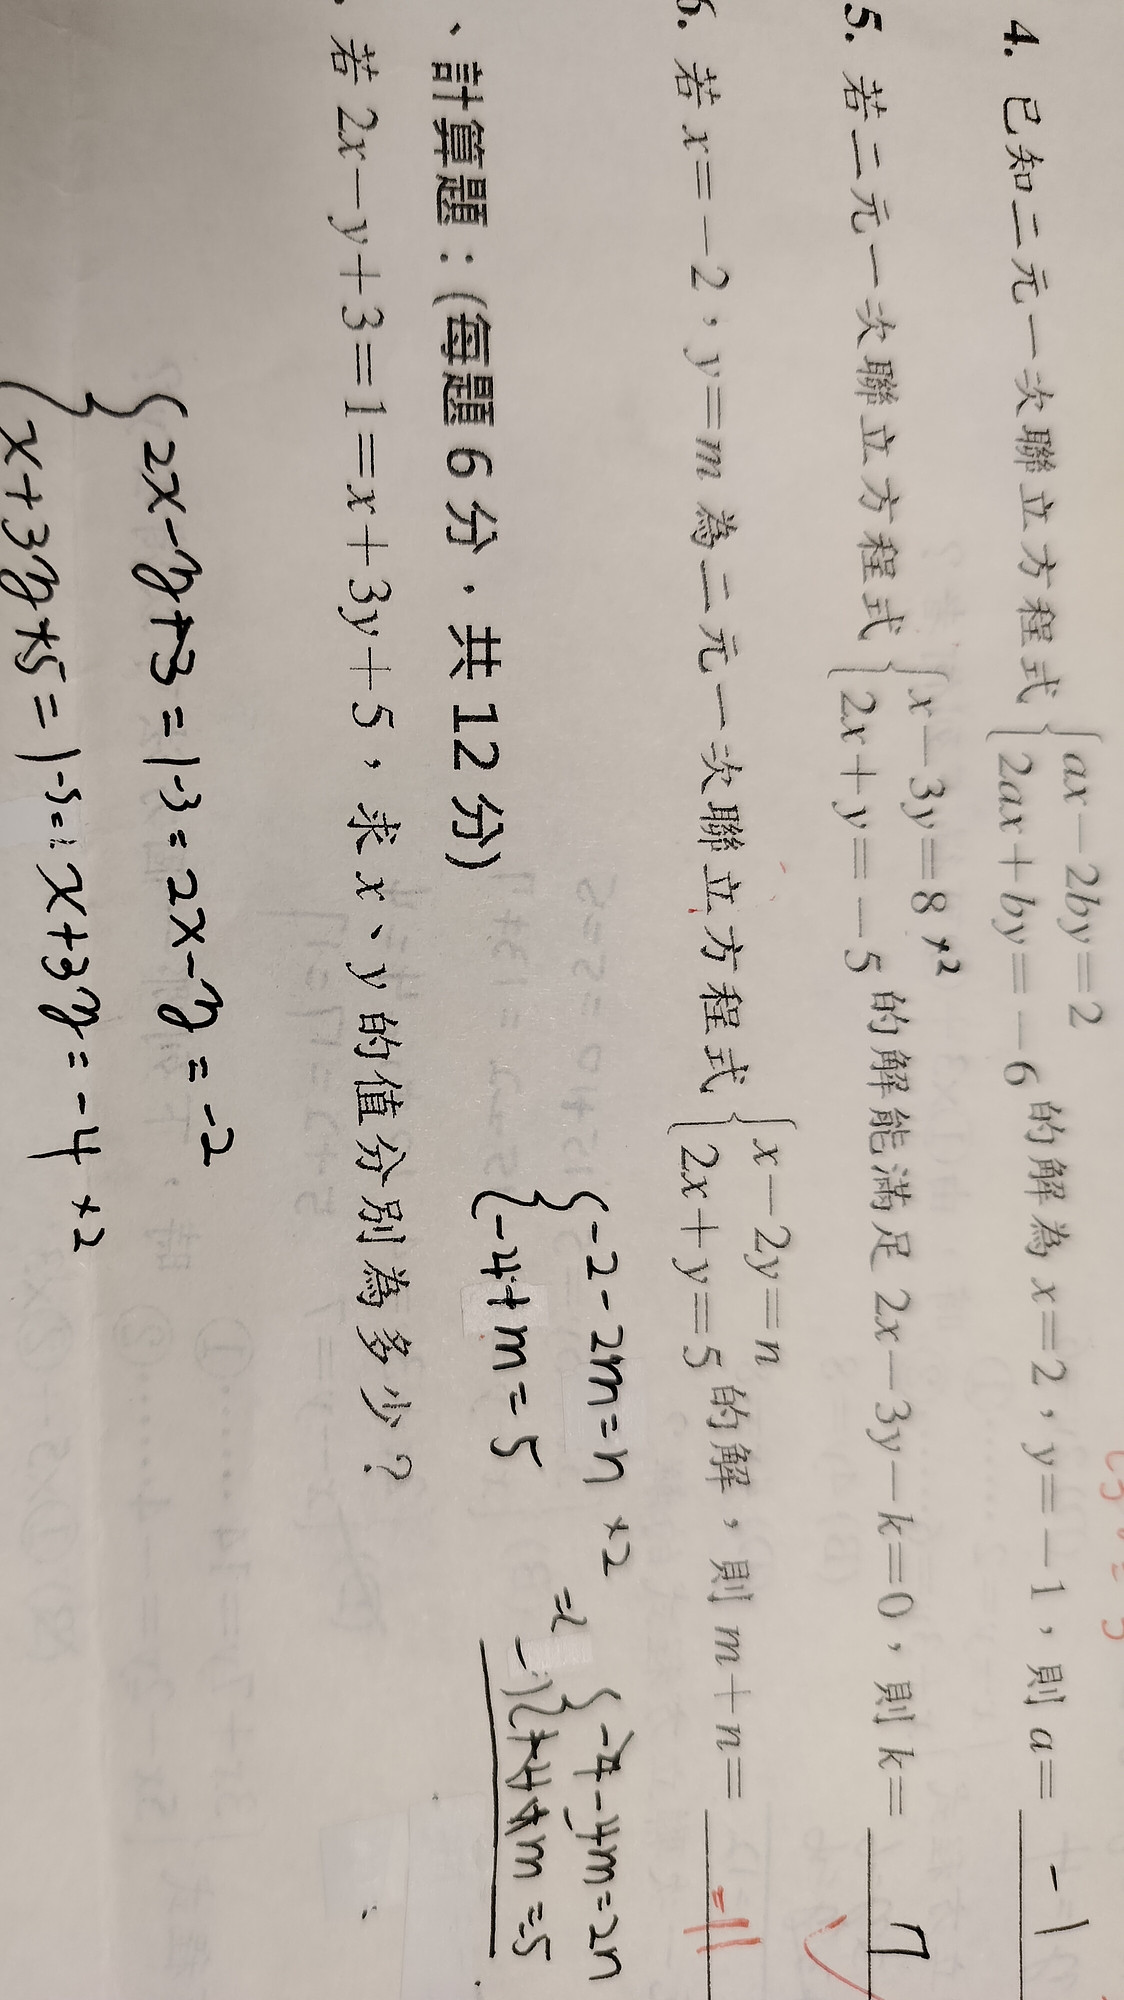 4. 已知二元一次聯立方程式 { ax－2by＝2
2ax＋by＝－6 的解為 x＝2，y＝－1，則 a＝ -1
5. 若二元一次聯立方程式 { x－3y＝8 ×2
2x＋y＝－5 的解能滿足 2x－3y－k＝0，則 k＝ 7
6. 若 x＝－2，y＝m 為二元一次聯立方程式 { x－2y＝n
2x＋y＝5 的解，則 m＋n＝ -11
{ -2-2m=n ×2
-4+m=5
-4-4m=2n
、計算題：(每題 6 分，共 12 分)
. 若 2x－y＋3＝1＝x＋3y＋5，求 x、y 的值分別為多少？
{ 2x-y+3=1-3=2x-y=-2
x+3y+5=1-5=x+3y=-4 ×2